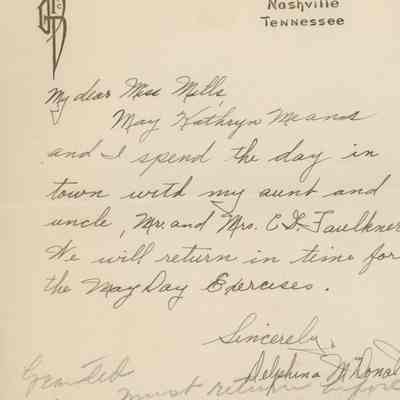 Nashville
Tennessee
My dear Miss Mills,
May Kathryn Means
and I spend the day in
town with my aunt and
uncle, Mr. and Mrs. C. D. Faulkner
We will return in time for
the May Day Exercises.
Sincerely,
Delphina McDonal
Granted
must return before